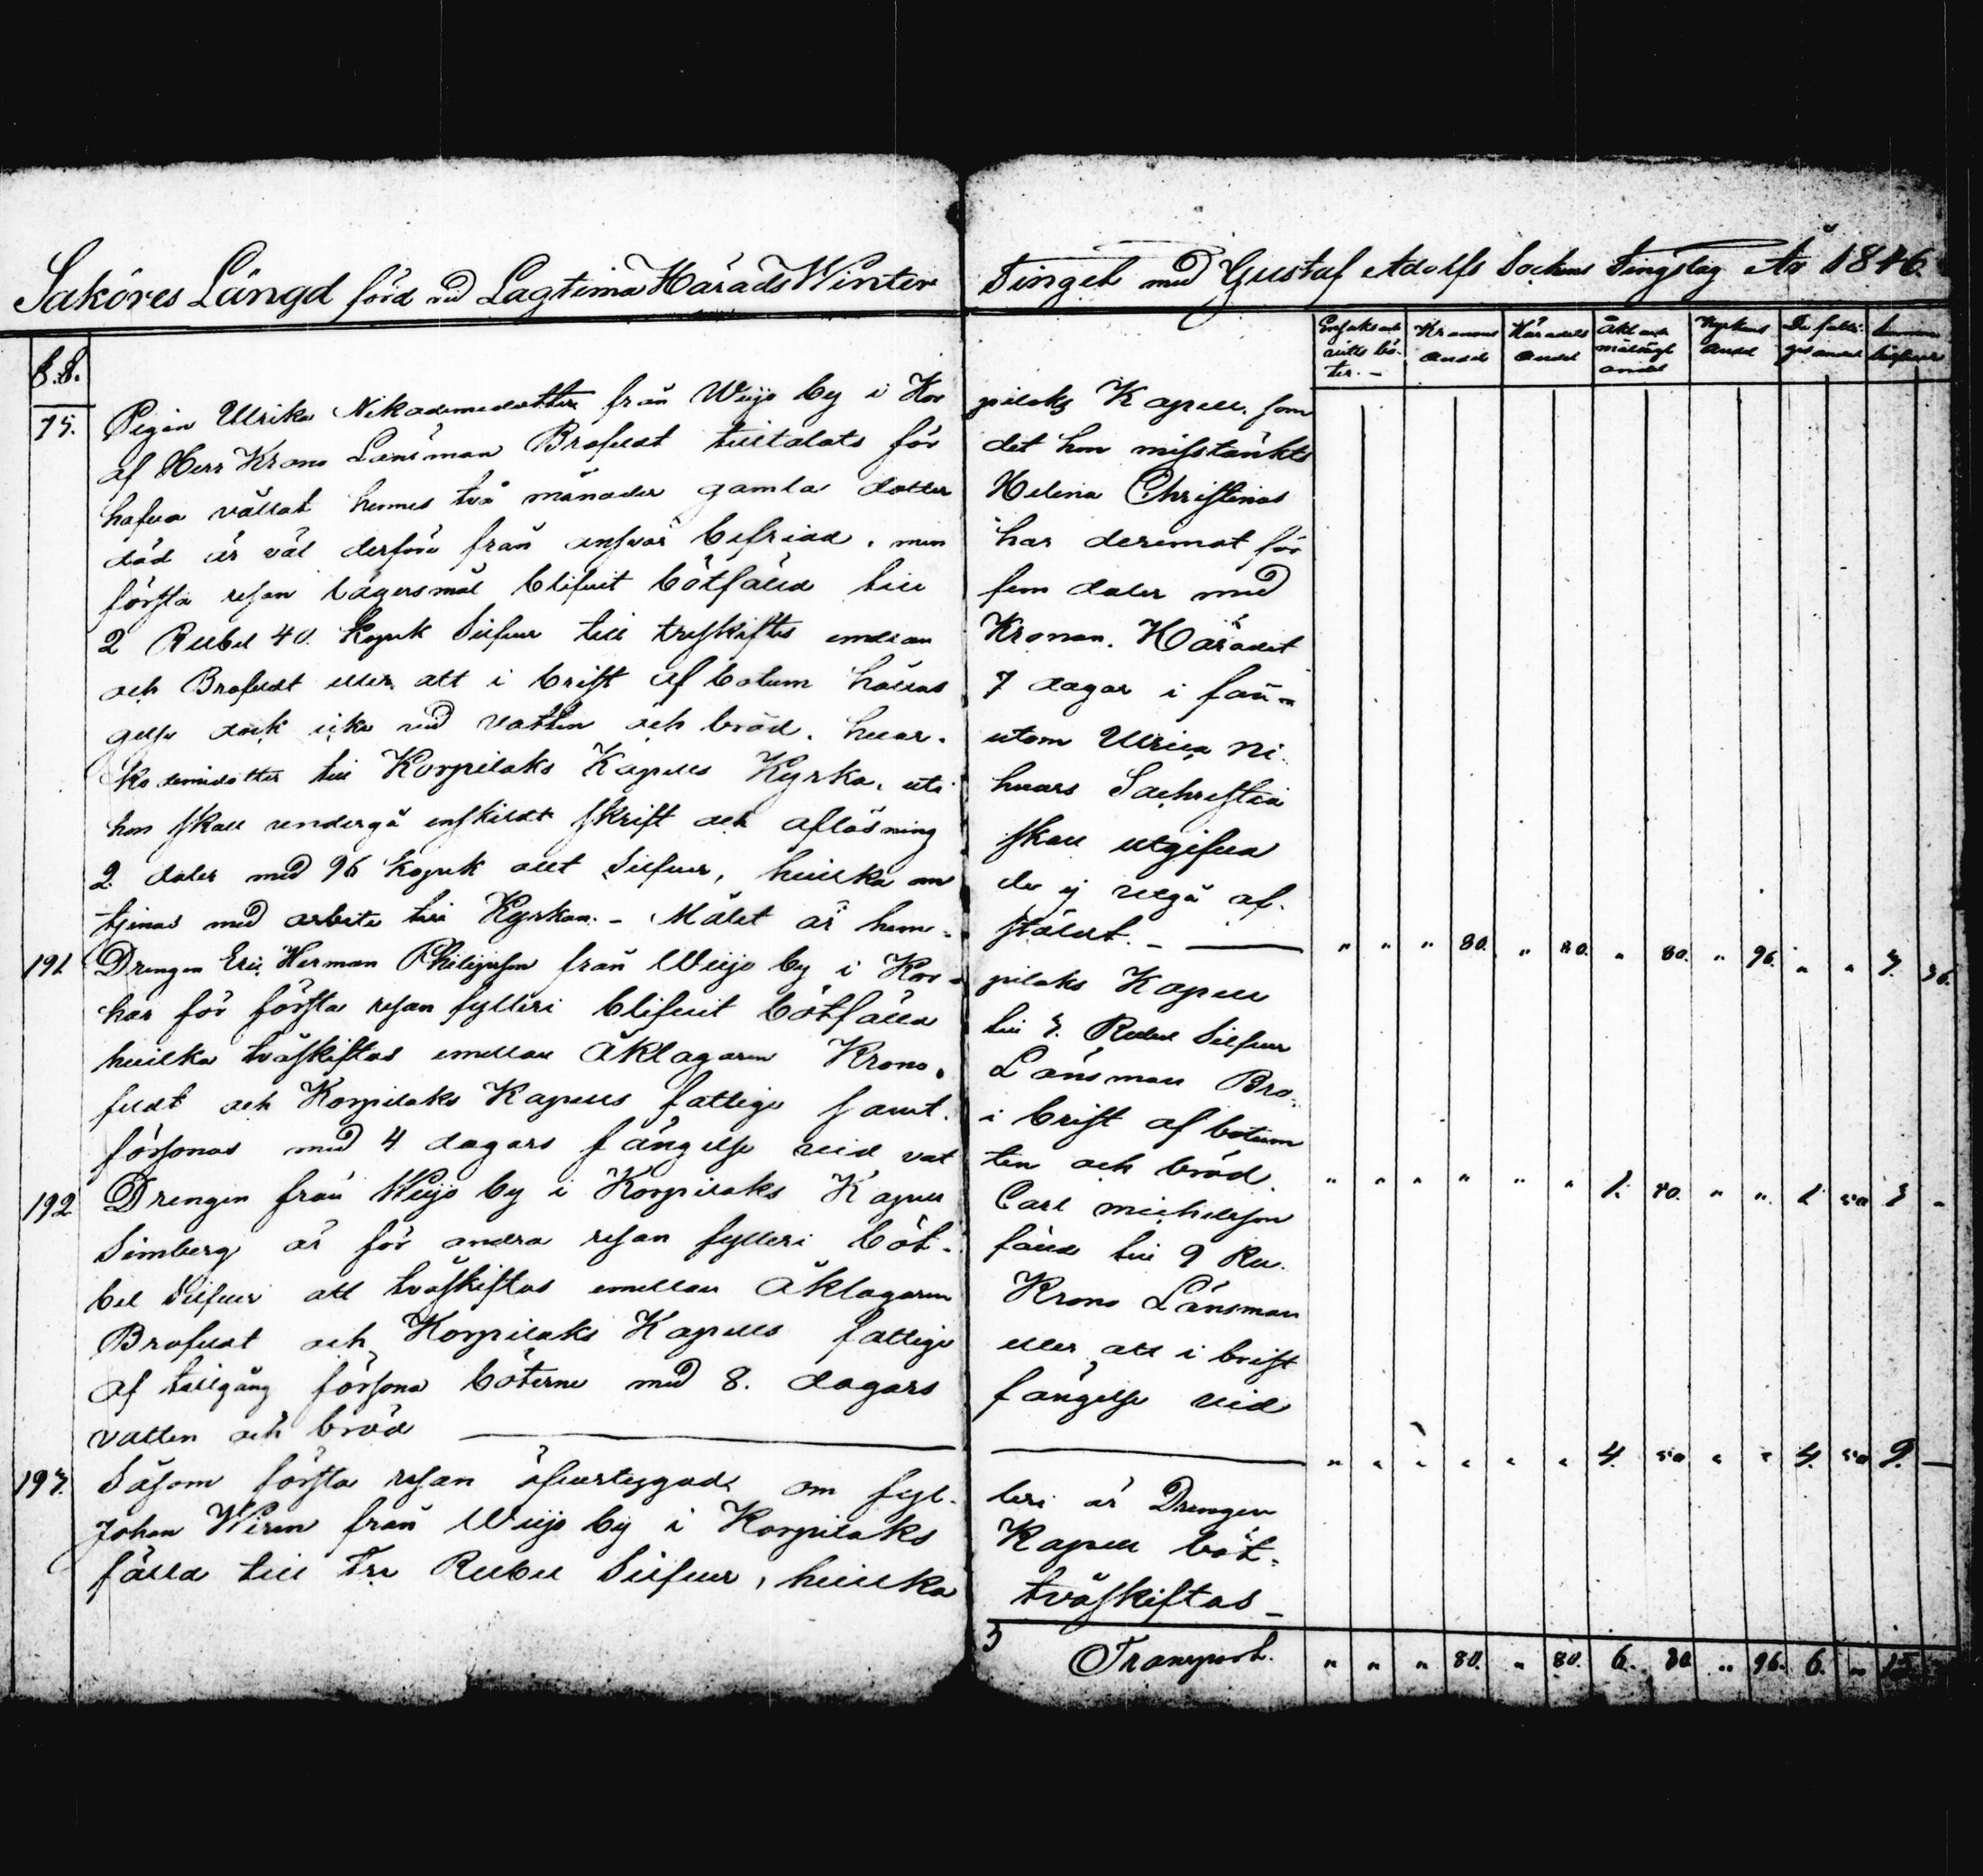 Saköres Längd förd vid Lagtima Härads Winter Tinget med Gustaf Adolfs Sockens Tingslag År 1846.
§.§.
Kronans andel
Häradets andel
Kyrkans andel
De fattigas andel
75. Pigan Ulrika Nikodemidotter från Wiijo by i Kor pilaks Kapell, som
af Herr Krono Länsman Brofeldt tilltalats för det hon misstänkts
hafva vållat hennes två månader gamla dotter Helena Christinas
död är väl derföre från ansvar befriad, men har deremot för
första resan lägersmål blifvit bötfälld till fem daler med
2 Rubel 40. Kopek Silfver till treskiftes emellan Kronan, Häradet
och Brofeldt eller att i brist af botum hållas 7 dagar i fän-
gelse dock icke vid vatten och bröd, hvar- utom Ulrica Ni-
kodemidotter till Korpilaks Kapells Kyrka, uti hvars Sachristia
hon skall undergå enskildt skrift och aflösning skall utgifva
2. daler med 96 kopek allt Silfver, hvilka om de ej utgå af-
tjenas med arbete till Kyrkan. - Målet är hem- stäldt. - " " " 80. " 80. " 80. " 96. " " 3. 36.
191. Drengen Eric Herman Philipsson från Wiijo by i Kor- pilaks Kapell
har för första resan fylleri blifvit bötfälld till 3. Rubel Silfver
hvilka tväskiftas emellan Åklagaren Krono- Länsman Bro-
feldt och Korpilaks Kapells fattige samt i brist af botum
försonas med 4 dagars fängelse vid vat ten och bröd. " " " " " " 1. 50. " " 1 50 3 -
192 Drengen från Wiijo by i Korpilaks Kapell Carl Michelsson
Simberg är för andra resan fylleri böt- fälld till 9 Ru-
bel Silfver att tväskiftas emellan Åklagaren Krono Länsman
Brofeldt och Korpilaks Kapells fattige eller att i brist
af tillgång försona böterne med 8. dagars fängelse vid
vatten och bröd " " " " " " 4. 50 " " 4. 50 9. -
193. Såsom första resan öfvertygad om fyl- leri är Drengen
Johan Wirén från Wiijo by i Korpilaks Kapell böt-
fälld till Tre Rubel Silfver, hvilka tväskiftas -
Transport. " " " 80. " 80. 6. 80 " 96. 6. " 15